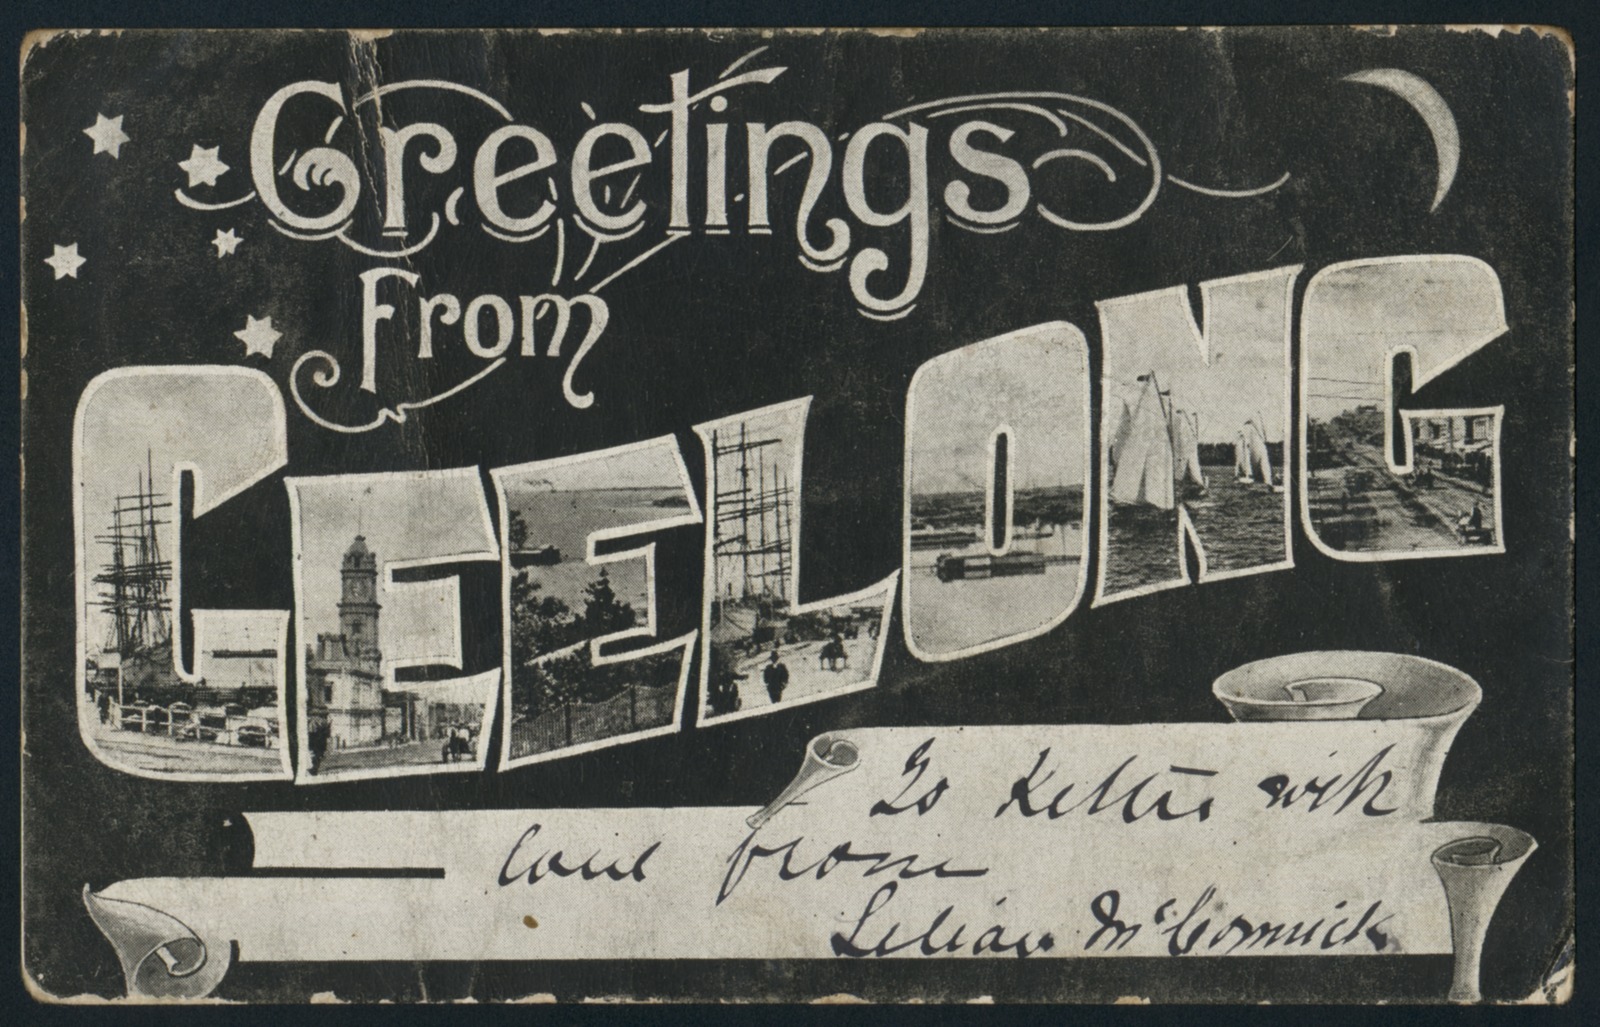 Greetings
From
GEELONG
To Kettie with
love from
Lilian McCormick